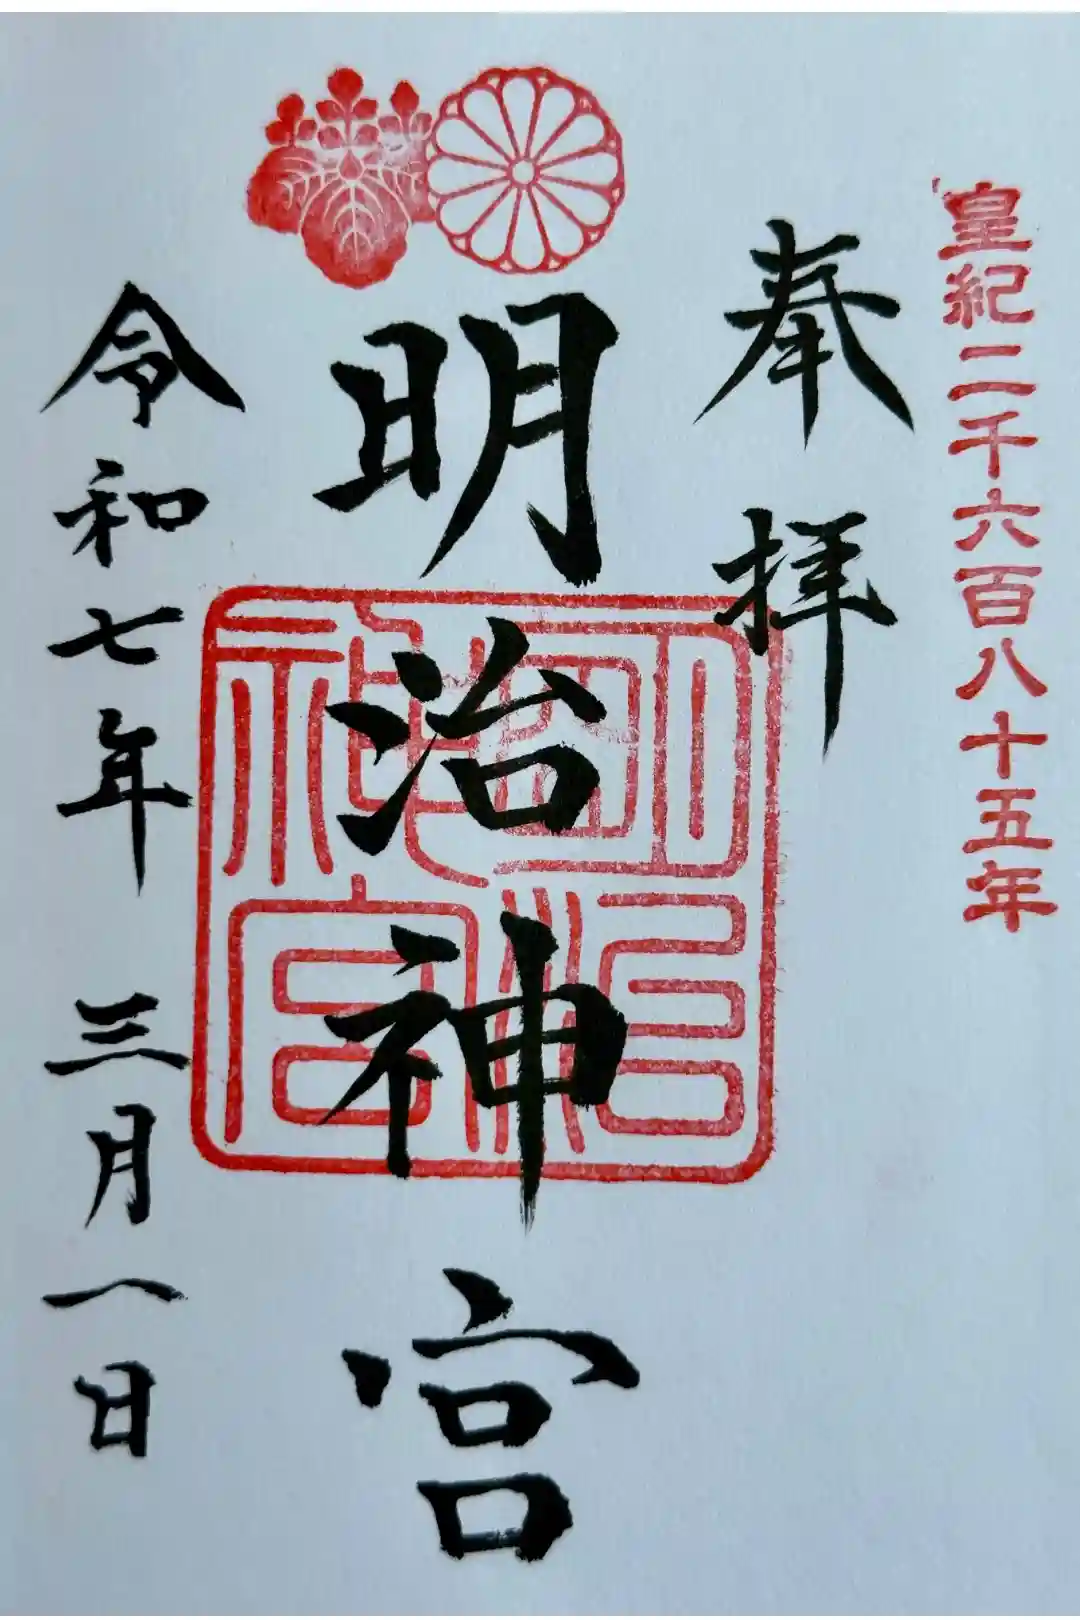 皇紀二千六百八十五年
奉拝
明治神宮
明治神宮
令和七年 三月一日